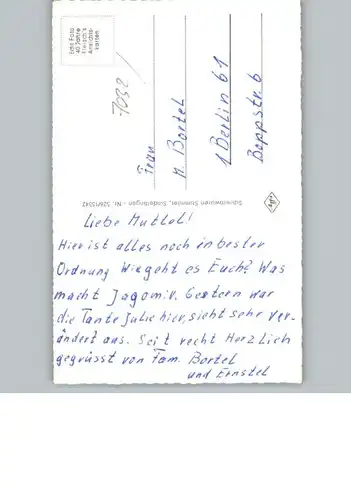 Echt Foto
40 Jahre
Ansichts-
karten
7032/
Frau
M. Bortel
1 Berlin 61
Boppstr. 6
Schreibwaren Strohmaier, Sindelfingen - Nr.
Liebe Muttel!
Hier ist alles noch in bester
Ordnung Wie geht es Euch? Was
macht Jagomir. Gestern war
die Tante Julie hier, sieht sehr ver-
ändert aus. Seit recht Herzlich
gegrüsst von Fam. Bortel
und Ernstel